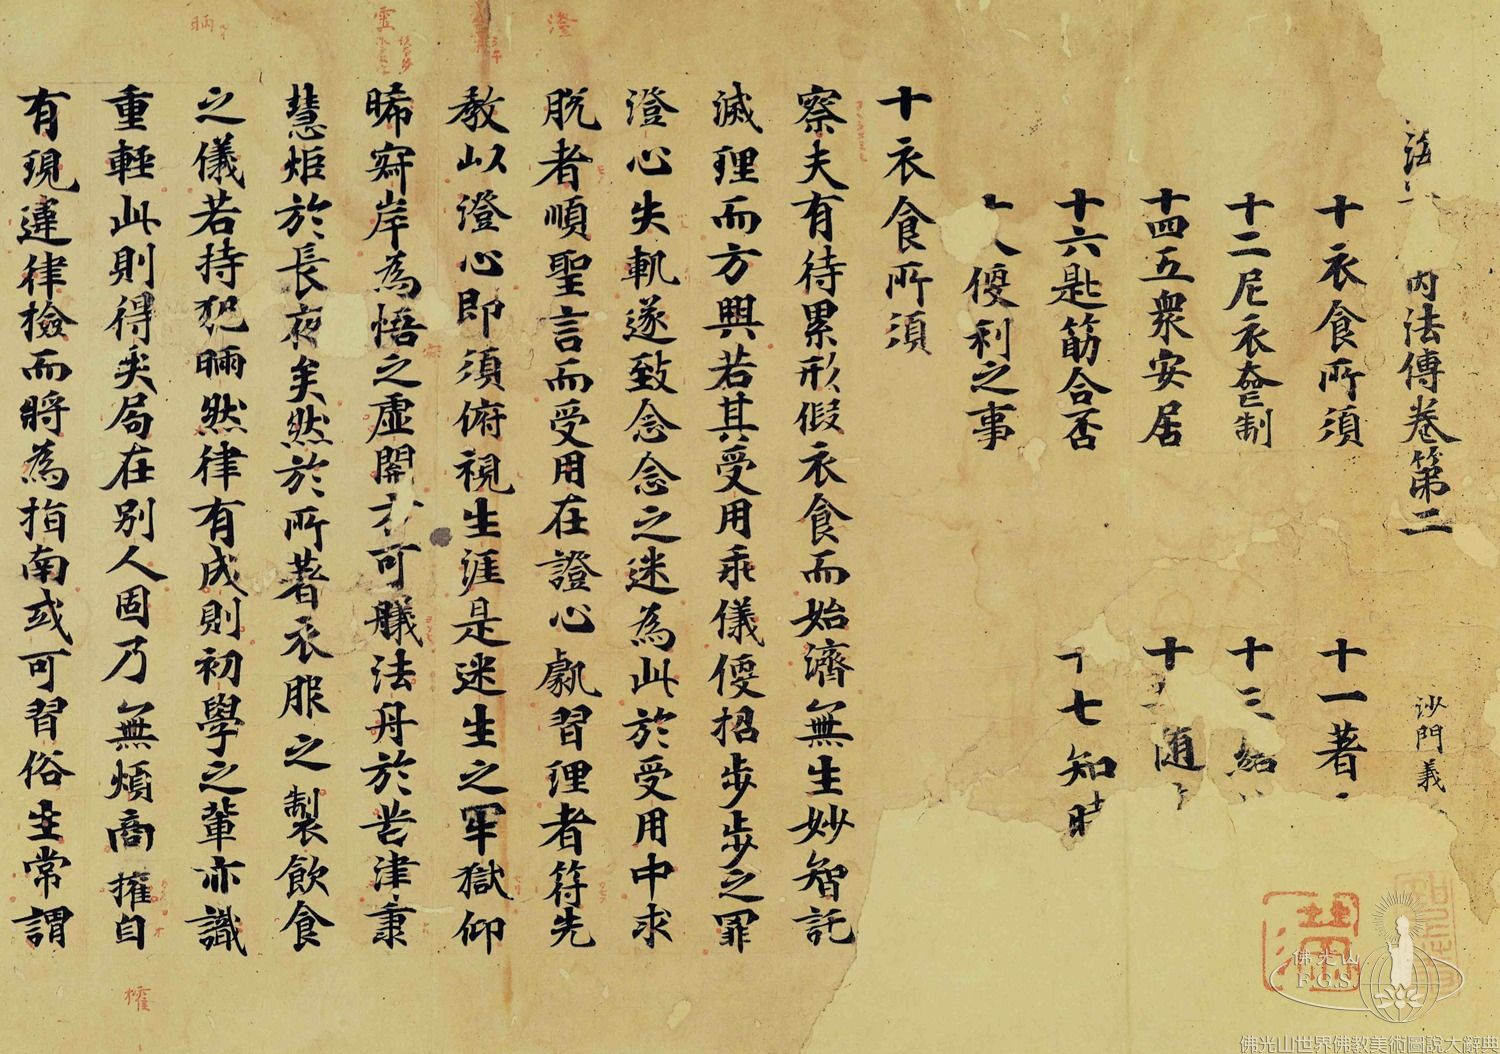 海 內法傳卷第二
沙門義
十衣食所須 十一著
十二尼衣喪制 十三結
十四五眾安居 十 随
十六匙筯合否 十七知時
十八便利之事
十衣食所須
察夫有待累形假衣食而始濟無生妙智託
滅理而方興若其受用乖儀便招步步之罪
澄心失軌遂致念念之迷為此於受用中求
脫者順聖言而受用在證心虧習理者符先
教以澄心即須俯視生涯是迷生之牢獄仰
晞寂岸為悟之虛關方可艤法舟於苦津秉
慧炬於長夜矣然於所著衣服之製飲食
之儀若持犯昞然律有成則初學之輩亦識
重輕此則得矣局在別人固乃無煩商搉自
有現違律檢而將為指南或可習俗生常謂
澄
靈
昞
榷
佛光山
F.G.S.
佛光山世界佛教美術圖說大辭典